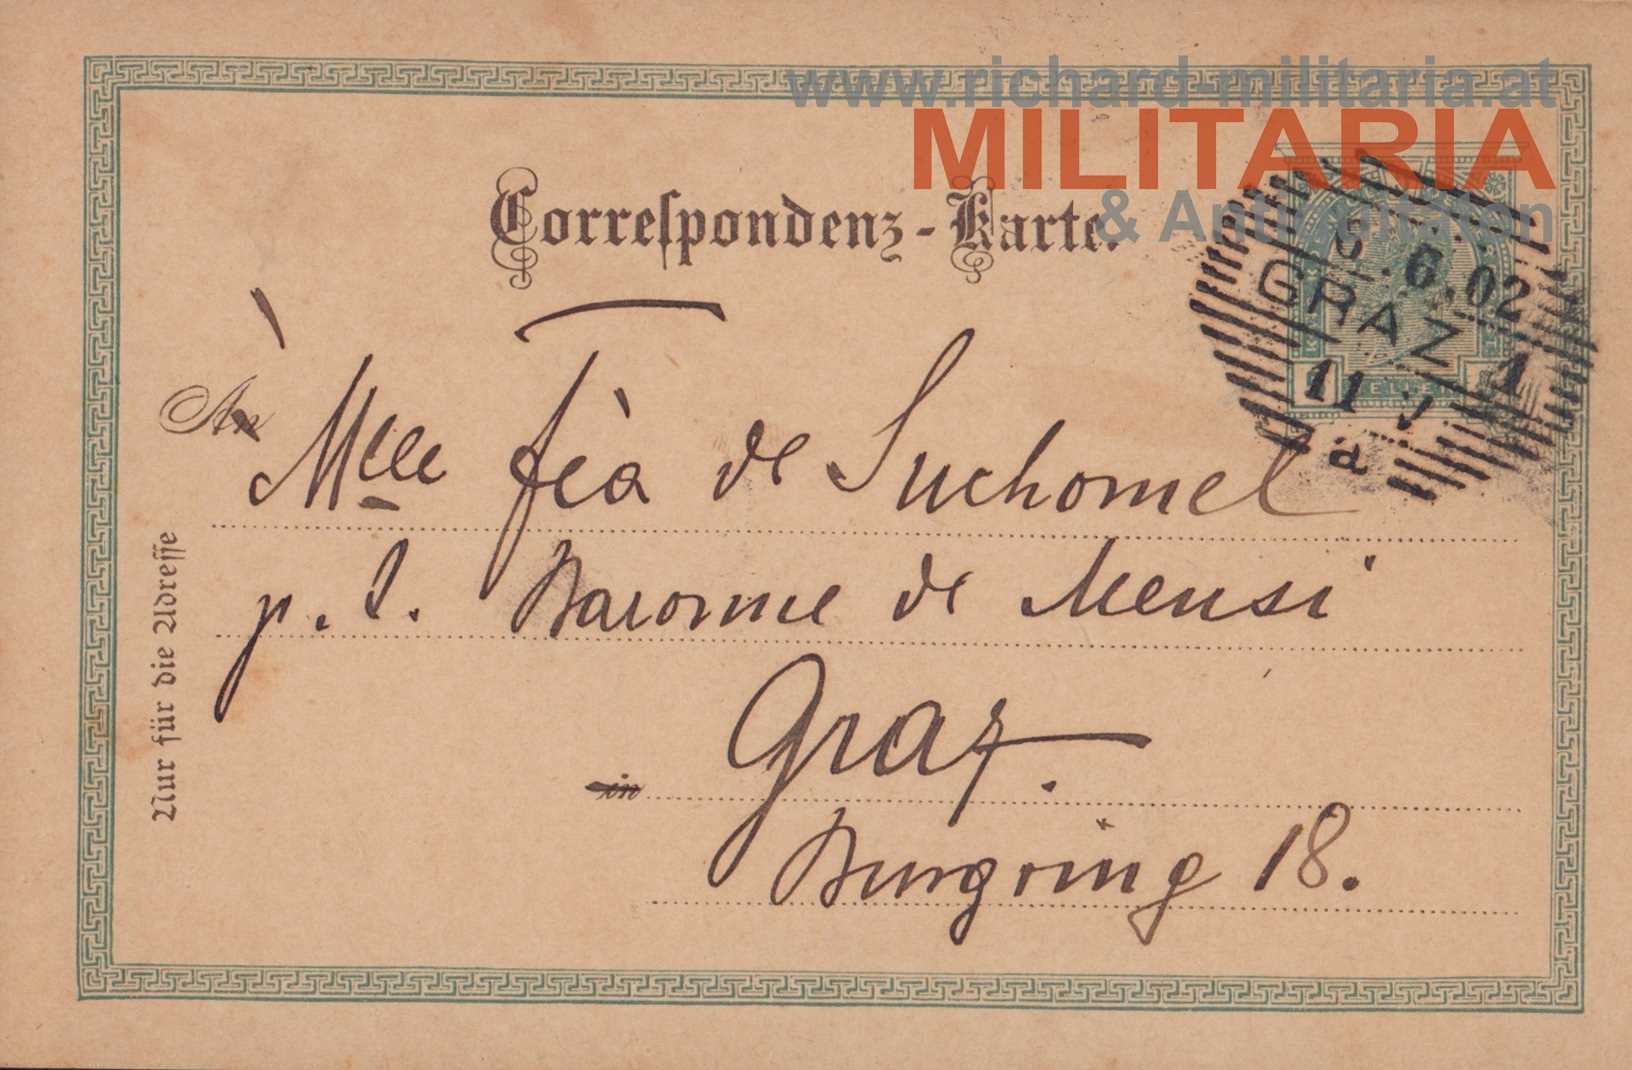 www.richard-militaria.at
MILITARIA
& Antiquitäten
Correspondenz-Karte.
6.02
GRAZ 1
11
a
À
An Mlle Féa de Suchomel
Nur für die Adresse
p. Baronne de Mensi
Graz.
in
Burgring 18.